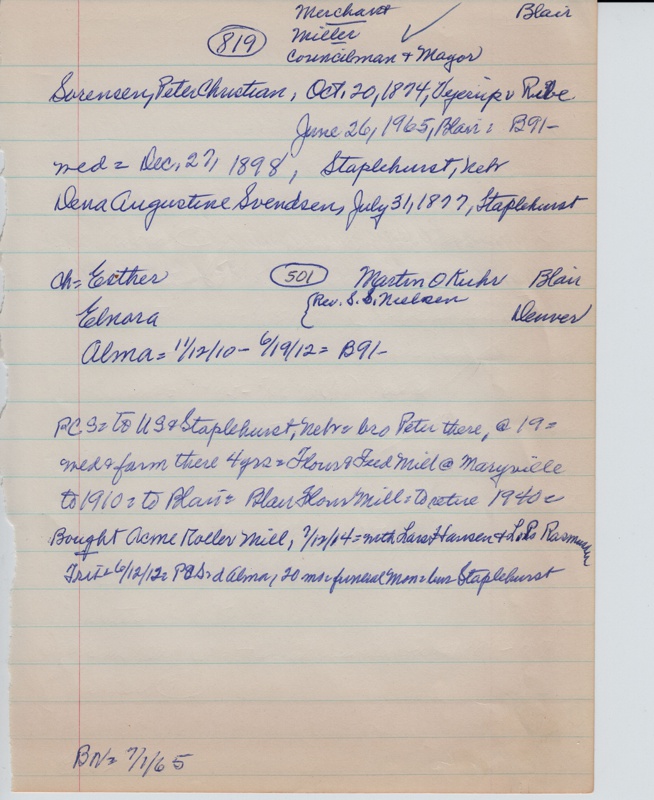 Merchant Blair
819 Miller
Councilman & Mayor
Sorensen, Peter Christian, Oct. 20, 1874, Vejrup v Ribe
June 26, 1965, Blair = B91-
med = Dec. 27, 1898, Staplehurst, Nebr
Dena Augustine Svendsen, July 31, 1877, Staplehurst
ch = Esther 501 Martin O Kuhr Blair
Elnora {Rev. S. S. Nielsen Denver
Alma = 11/12/10 - 6/19/12 = B91-
P.C.S = to US & Staplehurst, Nebr = bro Peter there, @ 19 =
med & farm there 4 yrs = Flour & Feed Mill @ Maryville
to 1910 = to Blair = Blair Flour Mill = to retire 1940 =
Bought Acme Roller Mill, 7/12/14 = with Lars Hansen & Rasmussen
6/12/12 = PCS = d Alma, 20 mo = funeral Mon = bur Staplehurst
BN = 7/1/65